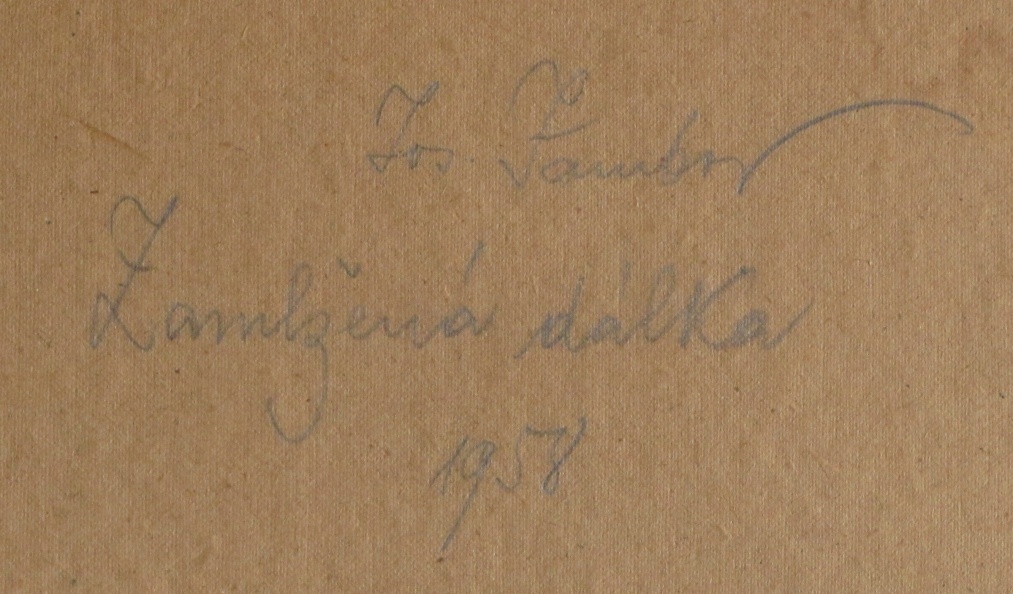 Jos. Jambor
Zamlžená dálka
1958